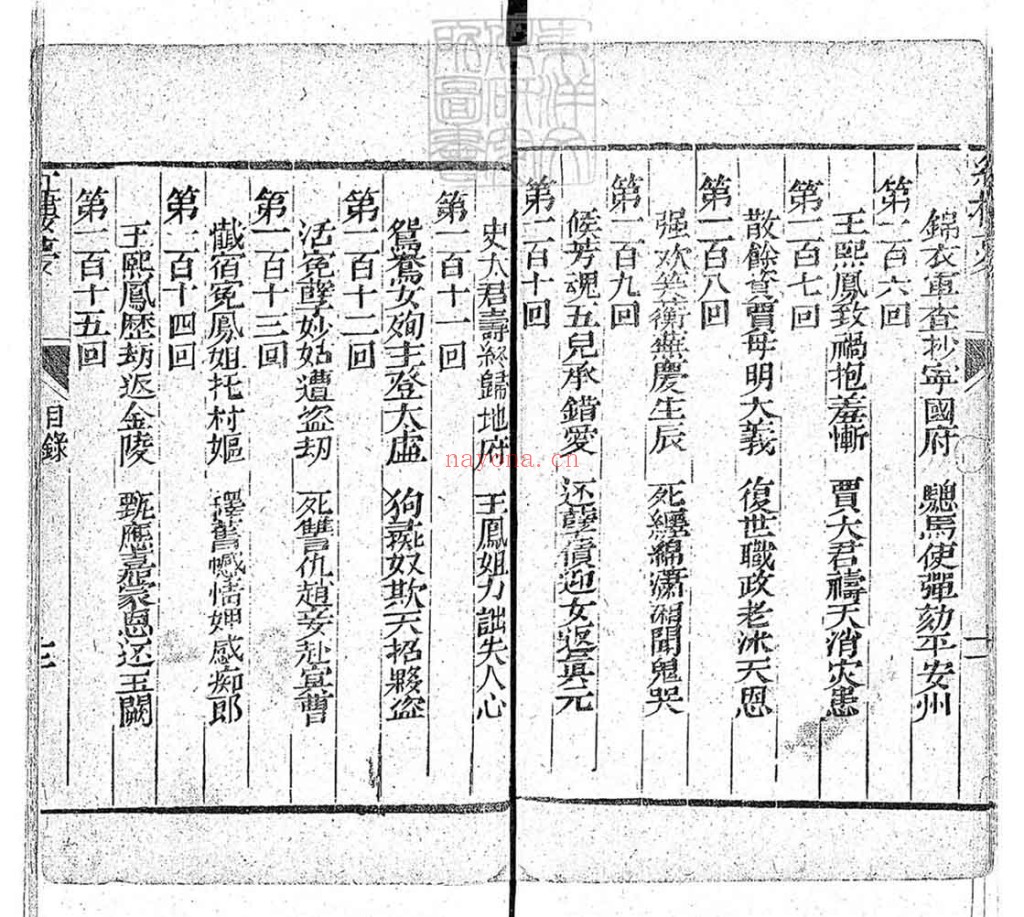 錦衣軍查抄寧國府　驄馬使彈劾平安州
第一百六回
王熙鳳致禍抱羞慚　賈太君禱天消灾患
第一百七回
散餘資賈母明大義　復世職政老沐天恩
第一百八回
强欢笑蘅蕪慶生辰　死纏綿瀟湘聞鬼哭
第一百九回
候芳魂五兒承錯愛　还孽債迎女返真元
第一百十回
史太君壽終歸地府　王鳳姐力詘失人心
第一百十一回
鴛鴦女殉主登太虛　狗彘奴欺天招夥盗
第一百十二回
活冤孽妙姑遭盗劫　死讐仇趙妾赴冥曹
第一百十三回
懺宿冤鳳姐托村嫗　釋舊憾情婢感痴郎
第一百十四回
王熙鳳歷劫返金陵　甄應嘉蒙恩还玉闕
第一百十五回
紅樓夢
目錄
三
nayona.cn